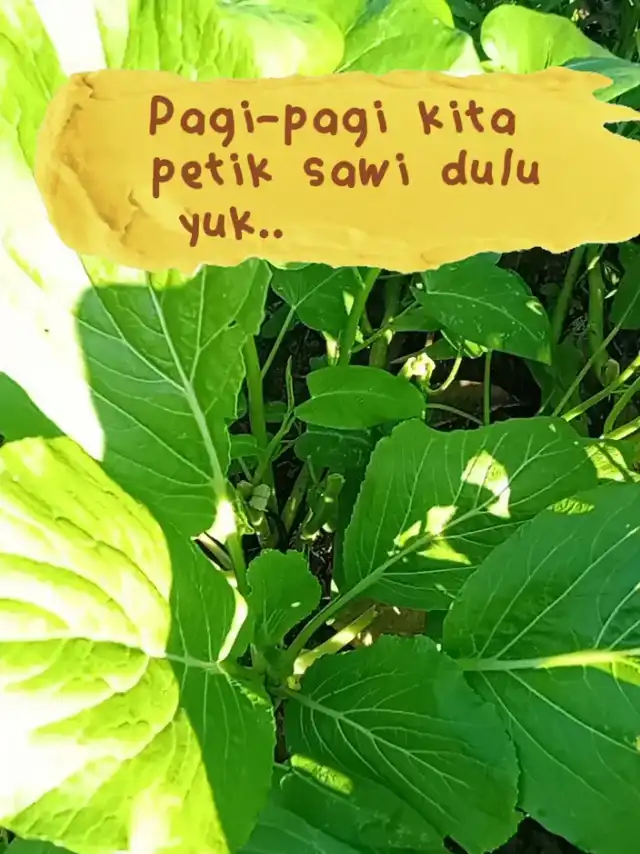 Pagi-pagi kita
petik sawi dulu
yuk..